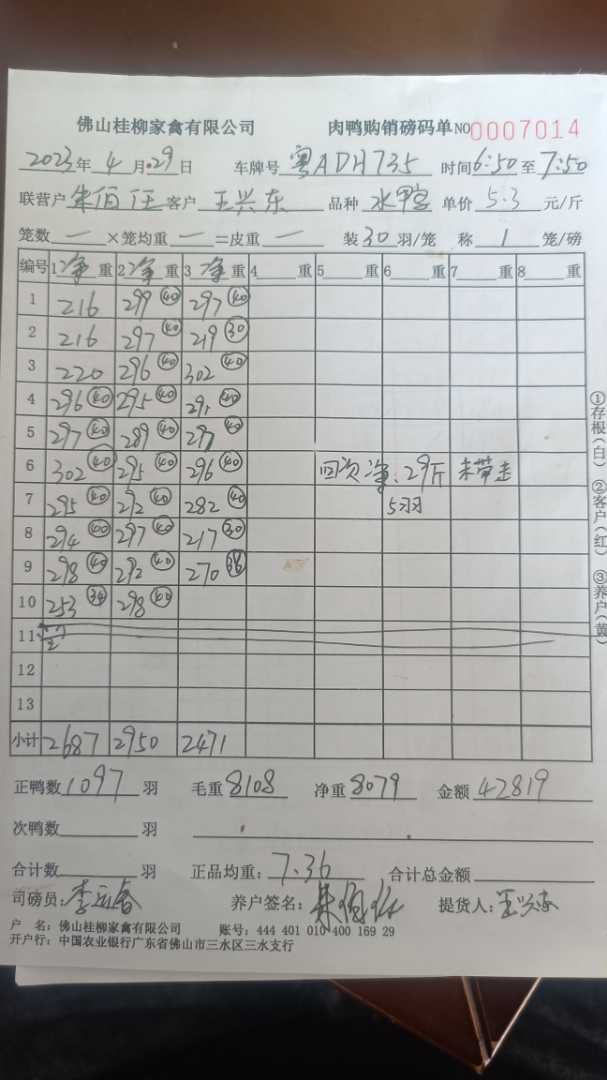 佛山桂柳家禽有限公司 肉鸭购销磅码单 NO 0007014
2023年 4月29日 车牌号 粤ADH735 时间 6:50 至 7:50
联营户 朱佰任 客户 王兴东 品种 水 单价 5.3 元/斤
笼数 一 ×笼均重 一 =皮重 一 装 30 羽/笼 称 1 笼/磅
编号 1 净 重 2 净 重 3 净 重 4 重 5 重 6 重 7 重 8 重
1 216 299 (40) 297 (40)
2 216 297 (40) 219 (30)
3 220 296 (40) 302 (40)
4 296 (40) 295 (40) 291 (40)
5 297 (40) 289 (40) 297 (40)
6 302 (40) 295 (40) 296 (40) 回次净:29斤 未带走
7 295 (40) 292 (40) 282 (40) 5羽
8 294 (40) 297 (40) 217 (30)
9 298 (40) 292 (40) 270
10 253 (34) 298 (40)
11
12
13
小计 2687 2950 2471
正鸭数 1097 羽 毛重 8108 净重 8079 金额 42819
次鸭数 羽
合计数 羽 正品均重: 7.36 合计总金额
司磅员: 养户签名: 朱佰任 提货人: 王兴东
户 名: 佛山桂柳家禽有限公司 账号: 444 401 010 400 169 29
开户行: 中国农业银行广东省佛山市三水区三水支行
①存根(白) ②客户(红) ③养户(黄)